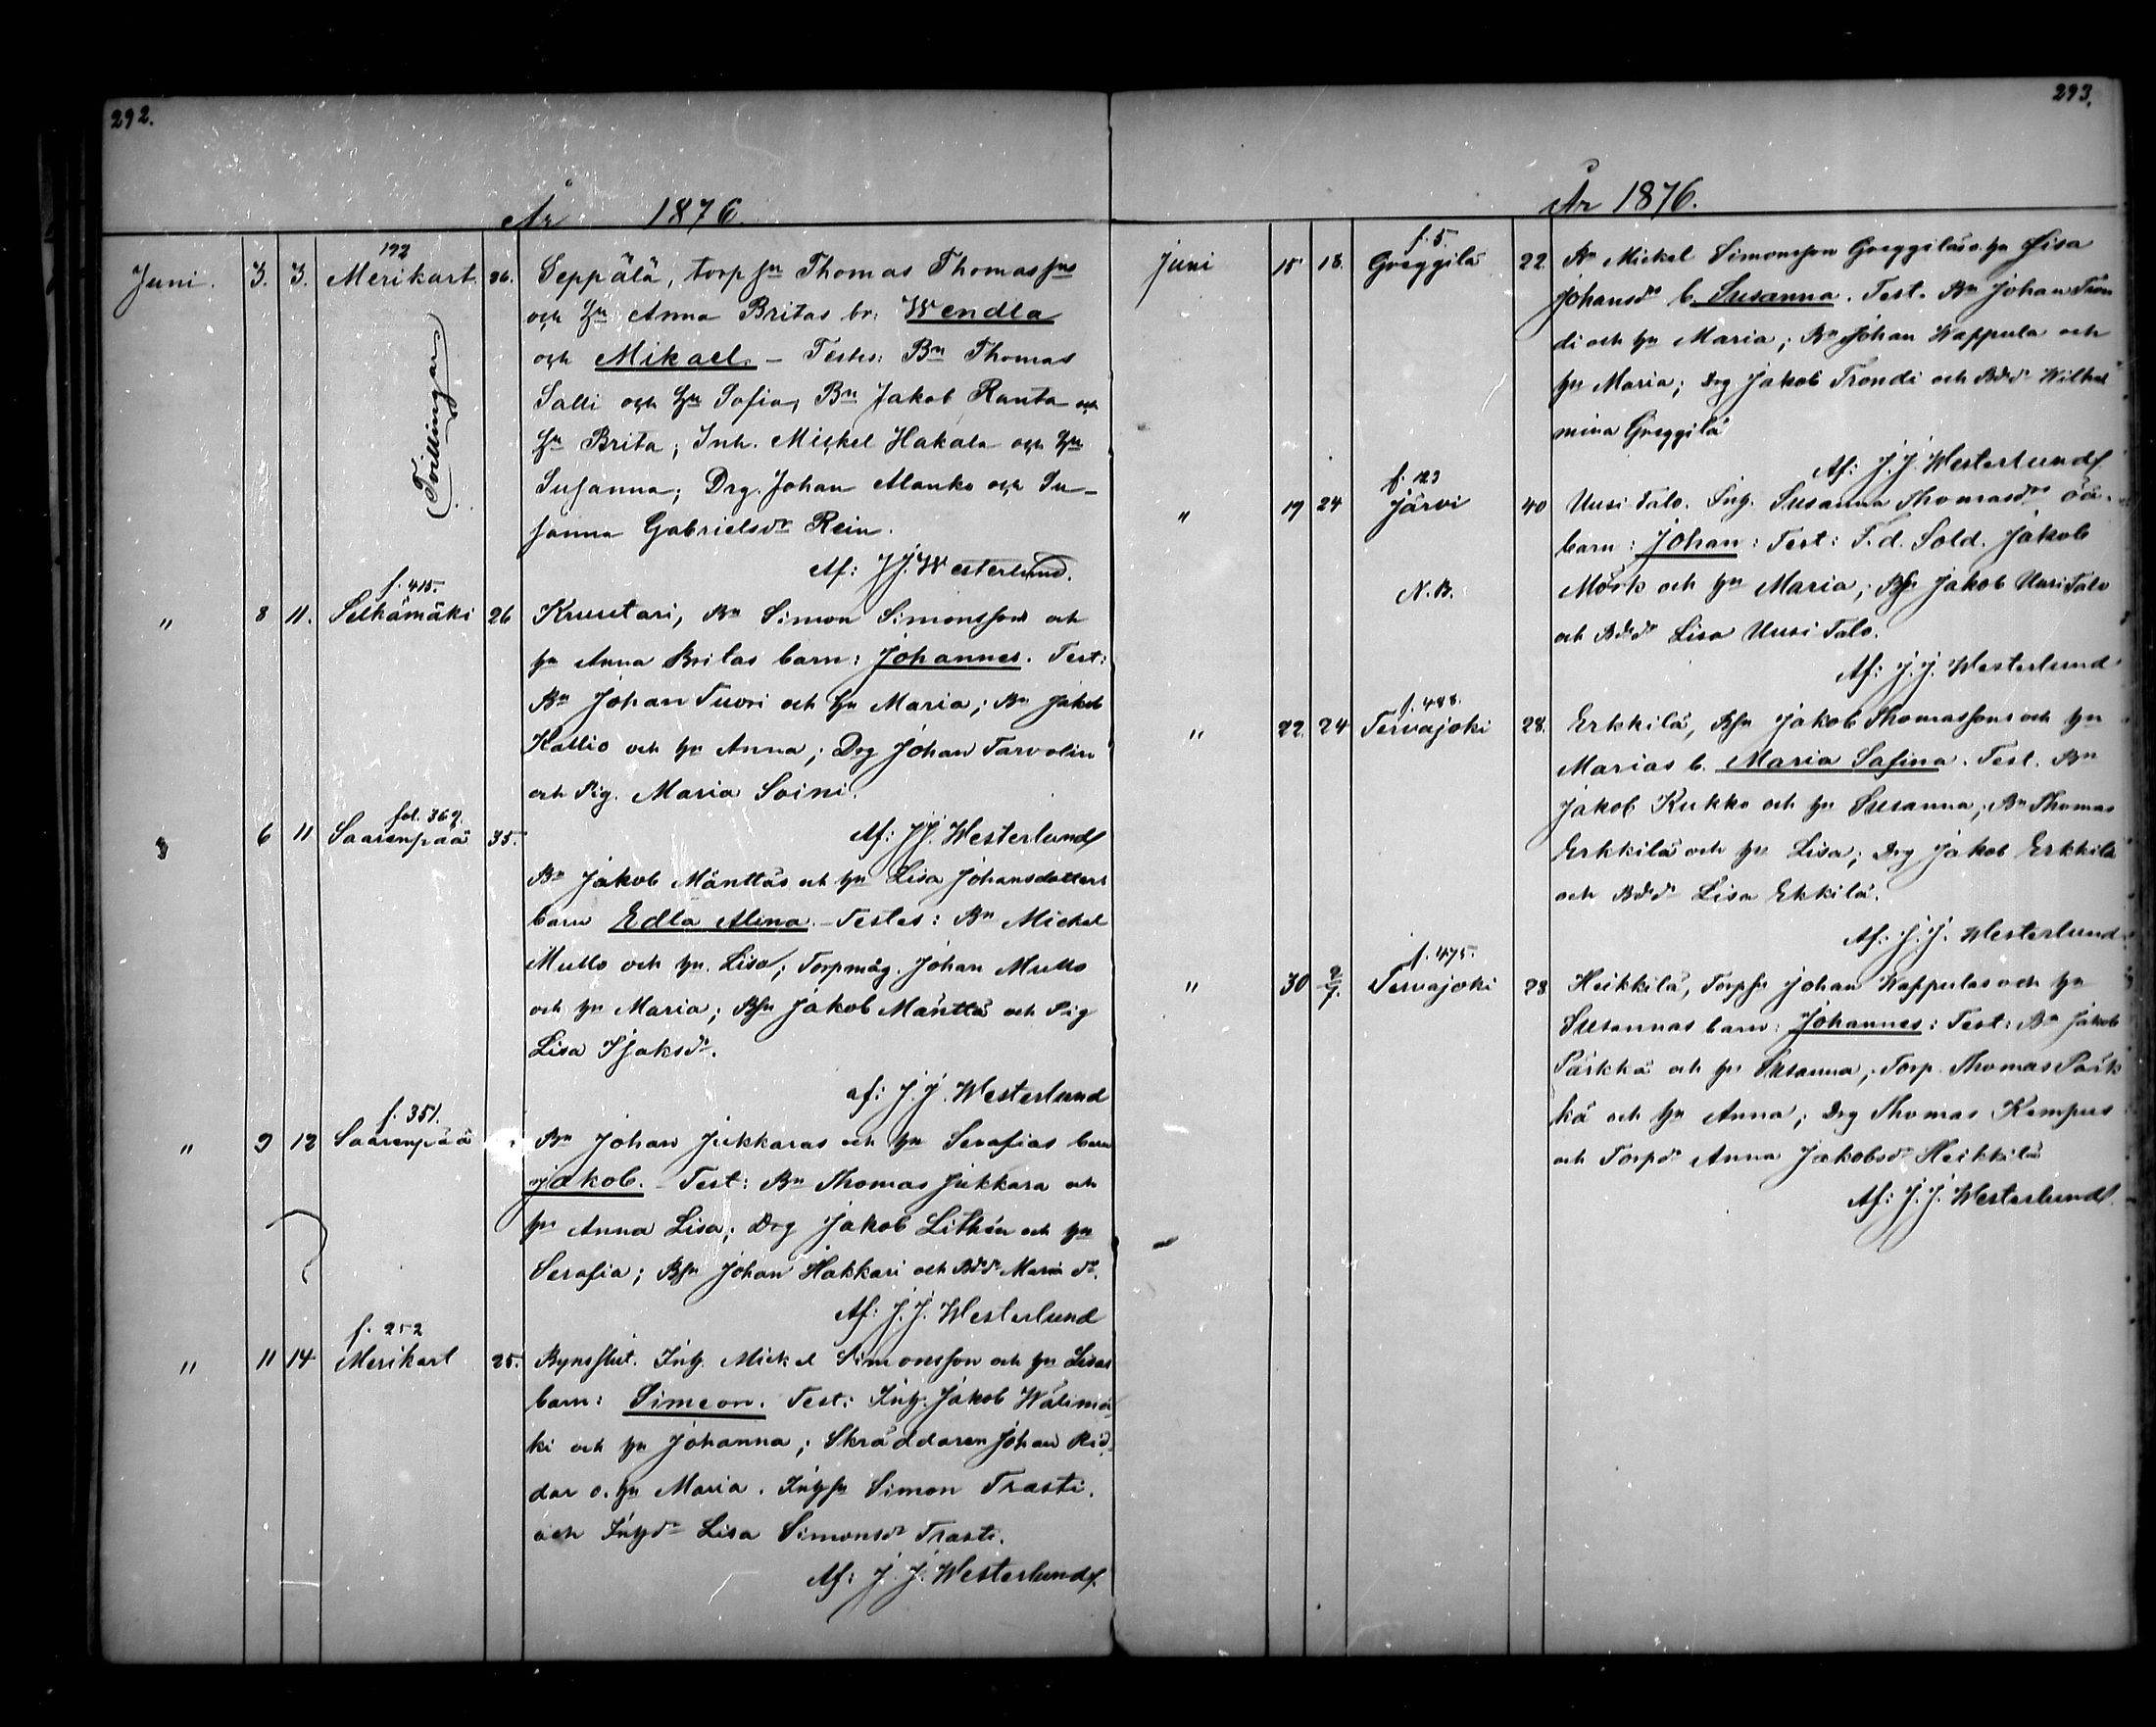 292.
År 1876.
192
Juni. 3. 3. Merikart. 36. Seppälä, torp sn Thomas Thomassns
och hu Anna Britas br: Wendla
och Mikael. - Testes: Bn Thomas
Tvillingar
Salli och hu Sofia, Bn Jakob Ranta och
hu Brita; Inh. Mickel Hakala och hu
Susanna; Drg. Johan Alanko och Su-
sanna Gabrielsdr Rein.
Af: J.J. Westerlund.
f. 415.
" 8 11. Selkämäki 26 Kruutari, Bn Simon Simonssons och
hu Anna Britas barn: Johannes. Test:
Bn Johan Tuori och hu Maria; Bn Jakob
Kallio och hu Anna; Drg Johan Tarvolin
och Pig. Maria Soini.
fol. 369.
6 11 Saarenpää 35. Af: J.J. Westerlund
Bn Jakob Mänttäs och hu Lisa Johansdotters
barn Edla Alina. - Testes: Bn Mickel
Mullo och hu. Lisa; Torpmåg. Johan Mullo
och hu Maria; Bsn Jakob Mänttä och Pig
Lisa Isaksdr.
af: J.J. Westerlund
f. 351.
" 9 12 Saarenpää Bn Johan Jukkaras och hu Serafias barn
Jakob. - Test: Bn Thomas Jukkara och
hu Anna Lisa; Drg Jakob Lithén och hu
Serafia; Bsn Johan Hakkari och Bdr Maria do.
Af: J.J. Westerlund
f. 252
" 11 14 Merikart 25. Inh. Mickel Simonsson och hu Lisas
barn: Simeon. Test: Inh. Jakob Wälimä-
ki och hu Johanna; Skräddaren Johan Rid-
dar o. hu Maria. Inhsn Simon Trasti.
och Inhdr Lisa Simonsdr Trasti.
Af: J.J. Westerlund.
293.
År 1876.
f. 5.
Juni 15 18. Greggilä 22. Bn Mickel Simonsson Greggiläs o. hu Lisa
Johansdrs b. Susanna. Test. Bn Johan Tron
di och hu Maria; Bn Johan Wappula och
hu Maria; Drg Jakob Trondi och Bdr Wilhel
mina Greggilä
Af: J.J. Westerlund
f. 123
" 19 24 Järvi 40 Uusi Talo. Inh. Susanna Thomasdrs oä.
barn: Johan: Test: F.d. Sold. Jakob
N.B. Mörk och hu Maria; Bsn Jakob Uusi Talo
och Bdr Lisa Uusi Talo.
Af: J.J. Westerlund
f. 488.
" 22. 24 Tervajoki 28. Erkkilä, Bsn Jakob Thomassons och hu
Marias b. Maria Safina. Test. Bn
Jakob Kukko och hu Susanna; Bn Thomas
Erkkilä och hu Lisa; Drg Jakob Erkkilä
och Bdr Lisa Ekkilä.
Af: J.J. Westerlund
f. 475.
" 30 2/7. Tervajoki 28 Heikkilä, Torpsn Johan Wappulas och hu
Susannas barn: Johannes: Test: Bn Jakob
Pärkkä och hu Susanna; Torp. Thomas Pärk
kä och hu Anna; Drg Thomas Kempus
och Torpdr Anna Jakobsdr Heikkilä
Af: J.J. Westerlund.